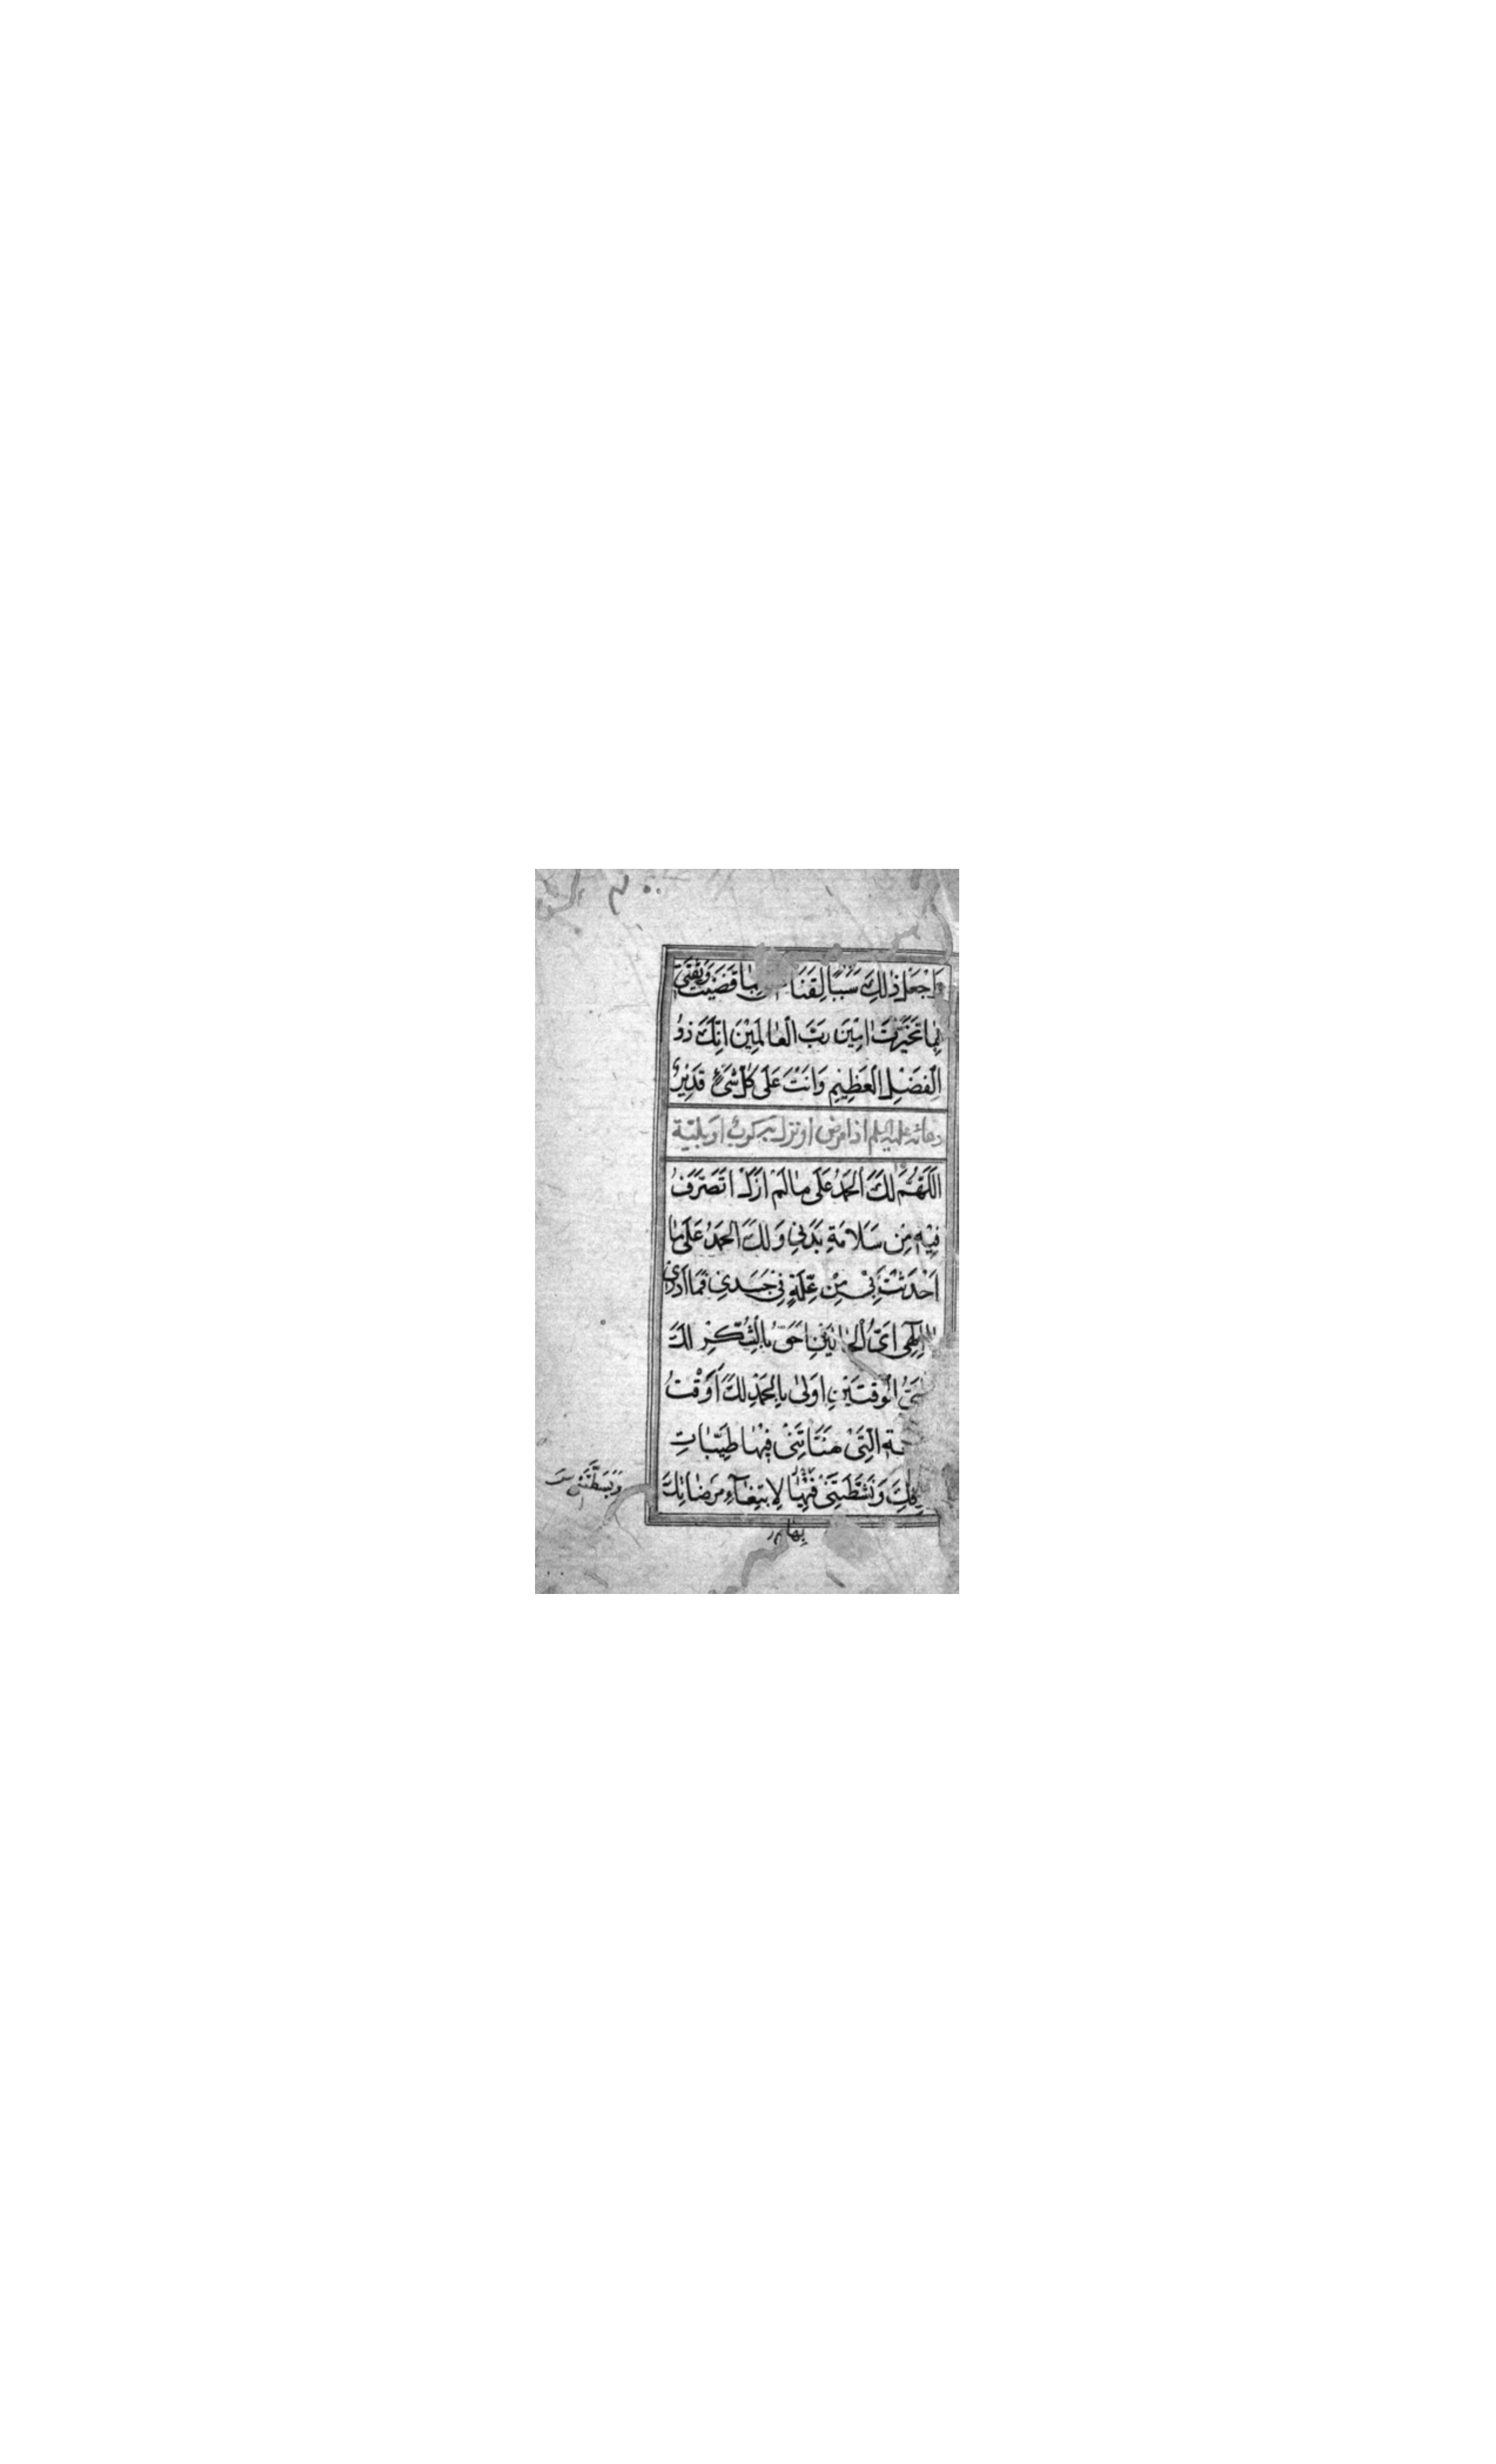 وَاجْعَلْ ذٰلِكَ سَبَبًا لِقَنَا بِمَا قَضَيْتَ وَثِقَتِيْ
بِمَا تَخَيَّرْتَ اٰمِيْنَ رَبَّ الْعَالَمِيْنَ اِنَّكَ ذُو
الْفَضْلِ الْعَظِيْمِ وَاَنْتَ عَلٰى كُلِّ شَيْءٍ قَدِيْرٌ
دعائه عليه السلم اذا مرض او نزل به كرب او بليّة
اَللّٰهُمَّ لَكَ الْحَمْدُ عَلٰى مَا لَمْ اَزَلْ اَتَصَرَّفُ
فِيْهِ مِنْ سَلَامَةِ بَدَنِيْ وَلَكَ الْحَمْدُ عَلٰى مَا
اَحْدَثْتَ بِيْ مِنْ عِلَّةٍ فِيْ جَسَدِيْ فَمَا اَدْرِيْ
اِلٰهِيْ اَيُّ الْحَالَيْنِ اَحَقُّ بِالشُّكْرِ لَكَ
الْوَقْتَيْنِ اَوْلٰى بِالْحَمْدِ لَكَ اَوَقْتُ
الَّتِيْ هَنَّاْتَنِيْ فِيْهَا طَيِّبَاتِ
وَنَشَّطْتَنِيْ فِيْهَا لِابْتِغَاءِ مَرْضَاتِكَ
وَبَسَطْتَنِيْ
بِهَا